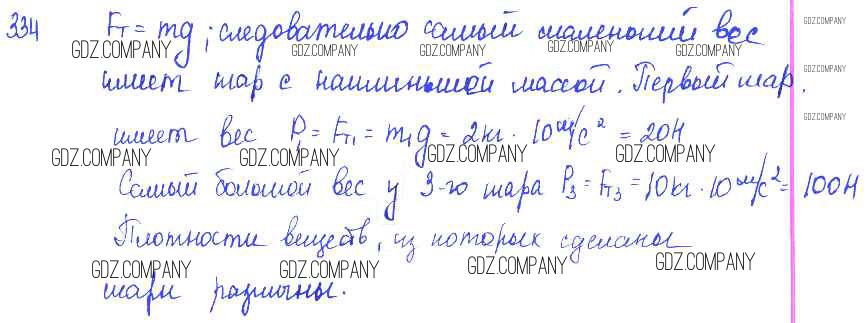 334 Fт = mg; следовательно самый маленький вес
имеет шар с наименьшей массой. Первый шар.
имеет вес P₁ = Fт₁ = m₁g = 2кг · 10 м/с² = 20Н
Самый большой вес у 3-го шара P₃ = Fт₃ = 10кг · 10 м/с² = 100Н
Плотности веществ, из которых сделаны
шары различны.
GDZ.COMPANY GDZ.COMPANY GDZ.COMPANY GDZ.COMPANY GDZ.COMPANY
GDZ.COMPANY GDZ.COMPANY GDZ.COMPANY GDZ.COMPANY
GDZ.COMPANY GDZ.COMPANY GDZ.COMPANY GDZ.COMPANY
GDZ.COMPANY
GDZ.COMPANY
GDZ.COMPANY
GDZ.COMPANY